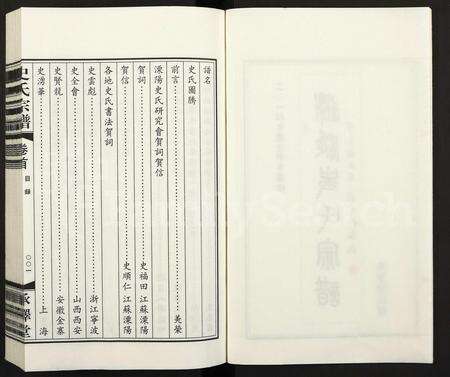 譜名
史氏圖騰
前言 美榮
溧陽史氏研究會賀詞賀信
賀詞 史福田 江蘇溧陽
賀信 史順仁 江蘇溧陽
各地史氏書法賀詞
史雲彪 浙江寧波
史全會 山西西安
史賢龍 安徽金寨
史湧華 上海
史氏宗譜 卷首 目錄 〇〇一
FamilySearch